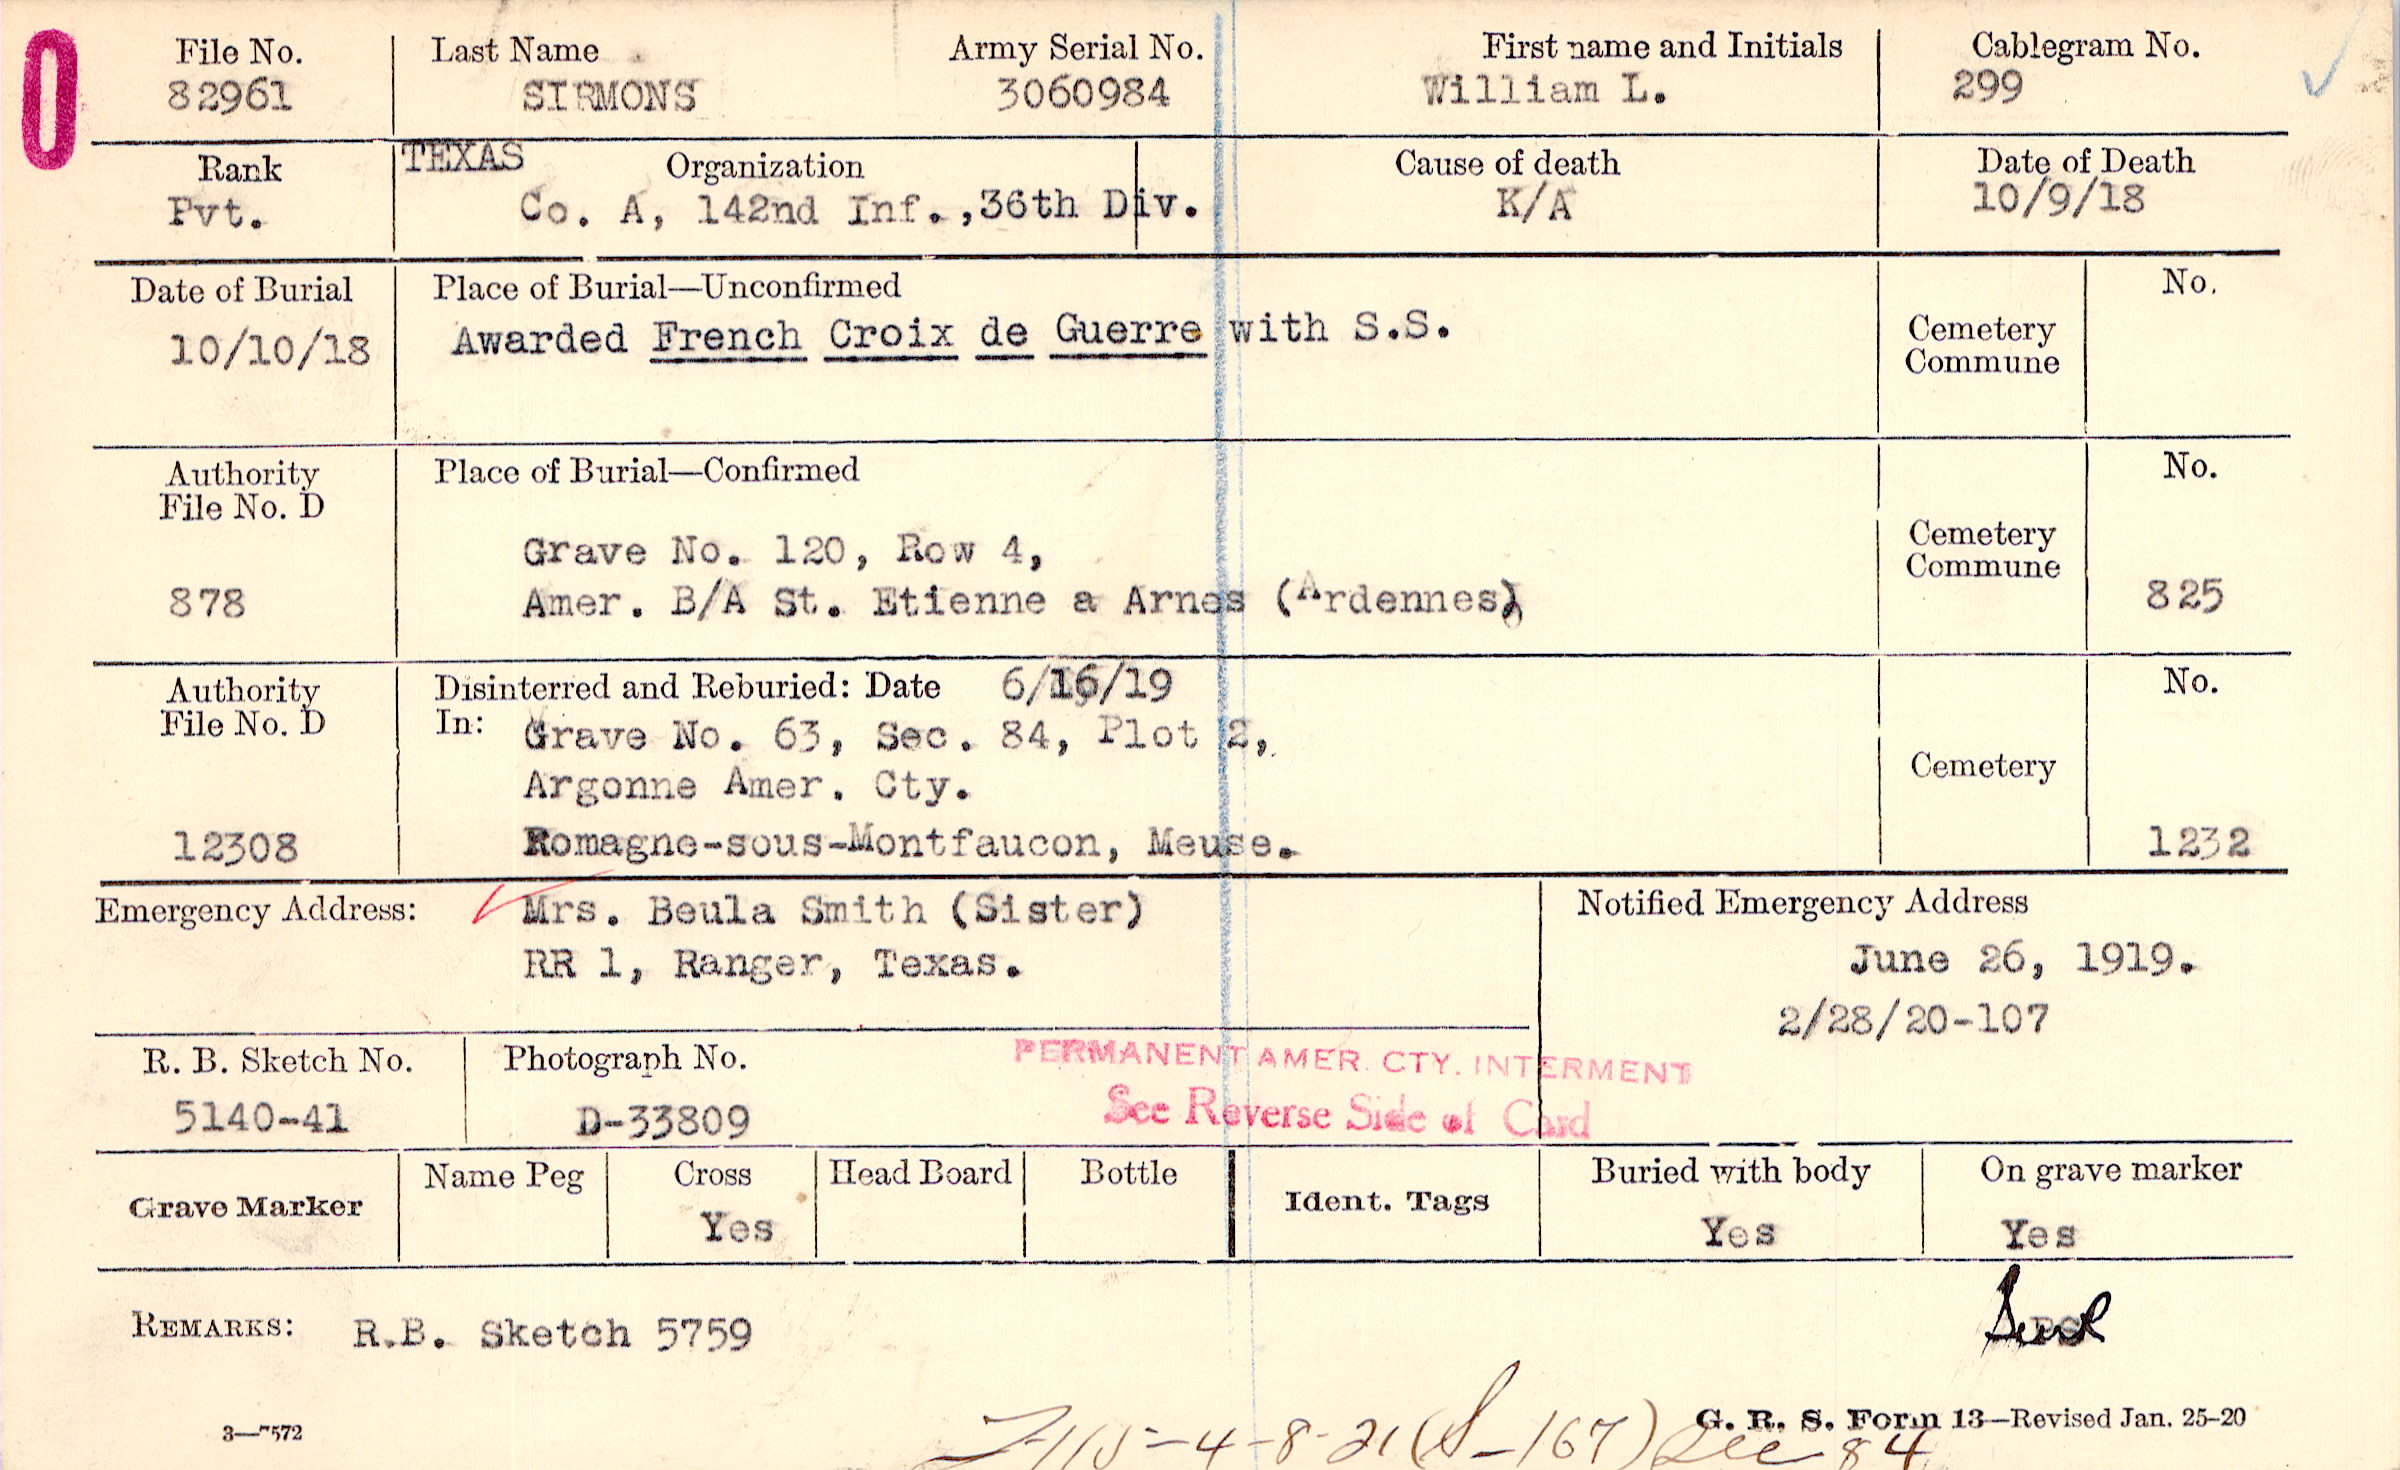 O
File No. Last Name Army Serial No. First name and Initials Cablegram No.
82961 SIRMONS 3060984 William L. 299
Rank TEXAS Organization Cause of death Date of Death
Pvt. Co. A, 142nd Inf.,36th Div. K/A 10/9/18
Date of Burial Place of Burial—Unconfirmed No.
10/10/18 Awarded French Croix de Guerre with S.S. Cemetery
Commune
Authority Place of Burial—Confirmed No.
File No. D
Grave No. 120, Row 4, Cemetery
Commune
878 Amer. B/A St. Etienne a Arnes (Ardennes) 825
Authority Disinterred and Reburied: Date 6/16/19 No.
File No. D In: Grave No. 63, Sec. 84, Plot 2,
Argonne Amer. Cty. Cemetery
12308 Romagne-sous-Montfaucon, Meuse. 1232
Emergency Address: Mrs. Beula Smith (Sister) Notified Emergency Address
RR 1, Ranger, Texas. June 26, 1919.
2/28/20-107
R. B. Sketch No. Photograph No. PERMANENT AMER. CTY. INTERMENT
5140-41 D-33809 See Reverse Side of Card
Grave Marker Name Peg Cross Head Board Bottle Ident. Tags Buried with body On grave marker
Yes Yes Yes
REMARKS: R.B. Sketch 5759
3—7572 G. R. S. Form 13—Revised Jan. 25-20
4-8-21 (S-167) Sec 84